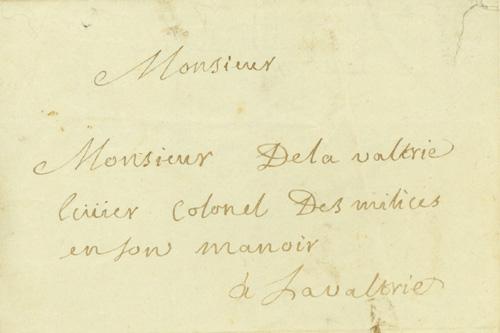 Monsieur
Monsieur Dela valtrie
Colonel Des milices
en son manoir
à Lavaltrie